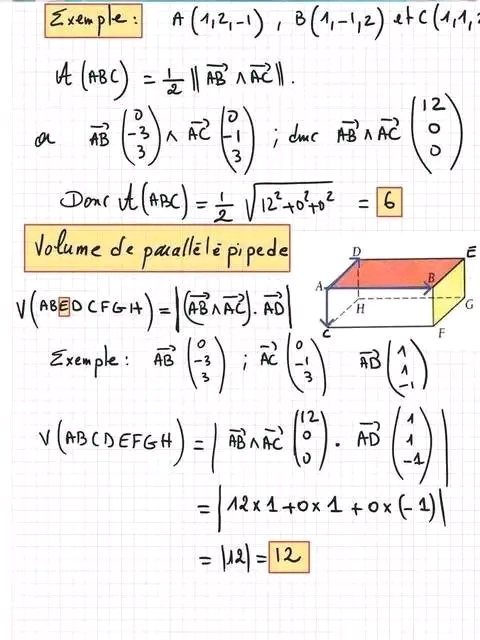 Exemple: A(1,2,-1), B(1,-1,2) et C(1,1,2
A(ABC) = 1/2 ||AB→ ∧ AC→||.
or AB→ (0 -3 3) ∧ AC→ (0 -1 3) ; donc AB→ ∧ AC→ (12 0 0)
Donc A(ABC) = 1/2 √(12²+0²+0²) = 6
Volume de parallélépipede
D E
A B
H G
C F
V(ABEDCFGH) = |(AB→ ∧ AC→). AD→|
Exemple: AB→ (0 -3 3) ; AC→ (0 -1 3) AD→ (1 1 -1)
V(ABCDEFGH) = | AB→ ∧ AC→ (12 0 0) . AD→ (1 1 -1) |
= |12×1+0×1+0×(-1)|
= |12| = 12